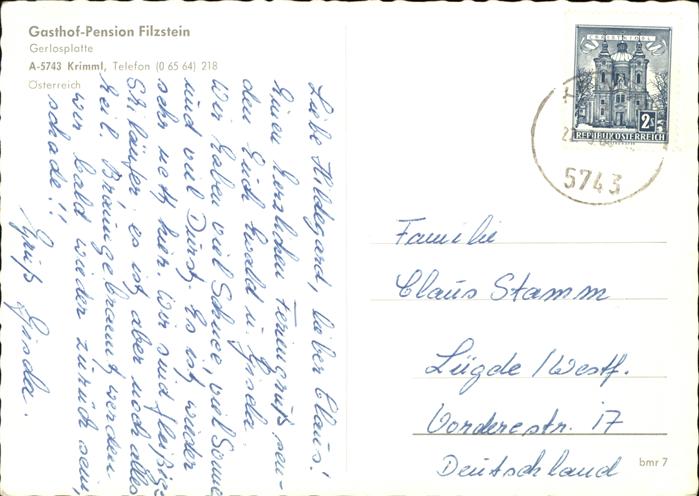 Gasthof-Pension Filzstein
Gerlosplatte
A-5743 Krimml, Telefon (0 65 64) 218
Österreich
Liebe Hildegard, lieber Claus!
Einen herzlichen Feriengruß sen-
den Euch Ewald u. Gisela.
Wir haben viel Schnee, viel Sonne
und viel Durst. Es ist wieder
sehr nett hier. Wir sind fleißige
Skiläufer, es ist aber noch alles
heil. Braungebrannt werden
wir bald wieder zurück sein,
schade!!
Gruß Gisela.
CHRISTKINDL
2 S
REPUBLIK ÖSTERREICH
5743
Familie
Claus Stamm
Lügde/Westf.
Vorderestr. 17
Deutschland
bmr 7